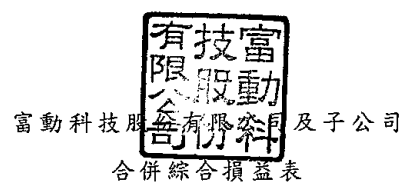 富動科技股份有限公司
富動科技股份有限公司及子公司
合併綜合損益表